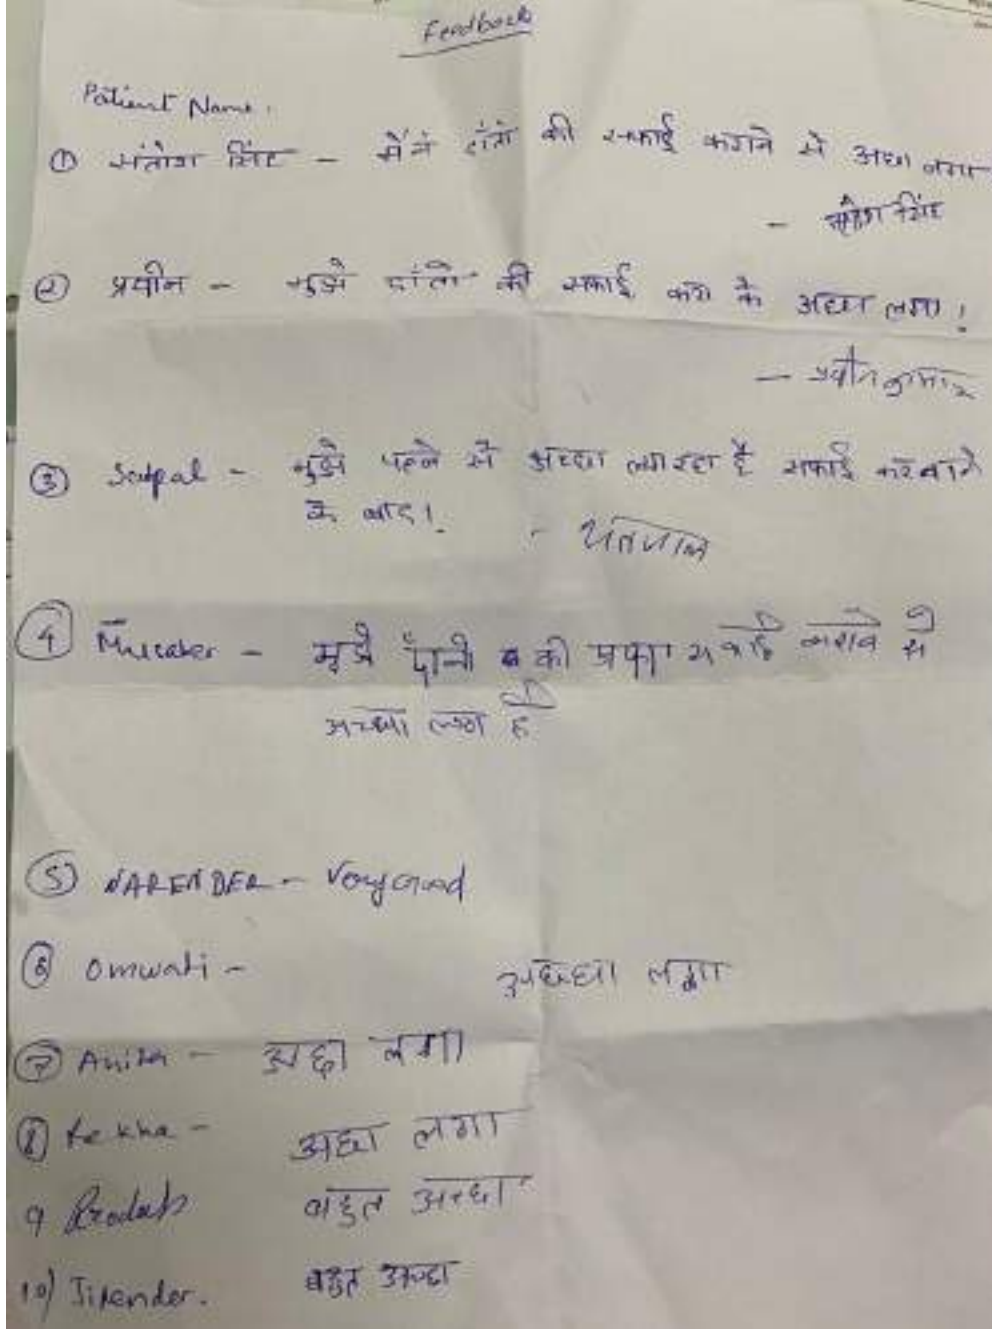 Feedback
Patient Name:
① संतोश सिंह - मैंने दांतो की सफाई कराने से अछा लगा
- संतोश सिंह
② प्रवीन - मुझे दांतो की सफाई करा के अछा लगा !
- प्रवीन कुमार
③ Satpal - मुझे पहले से अच्छा लग रहा है सफाई करवाने
के बाद।
④ - मुझे दाँतो की सफाई से
अच्छा लगा है
⑤ NARENDER - Very Good
⑥ Omwati - अच्छा लगा
⑦ Anita - अछा लगा
⑧ Rekha - अछा लगा
9 Pradeep बहुत अच्छा
10) Jitender. बहुत अच्छा